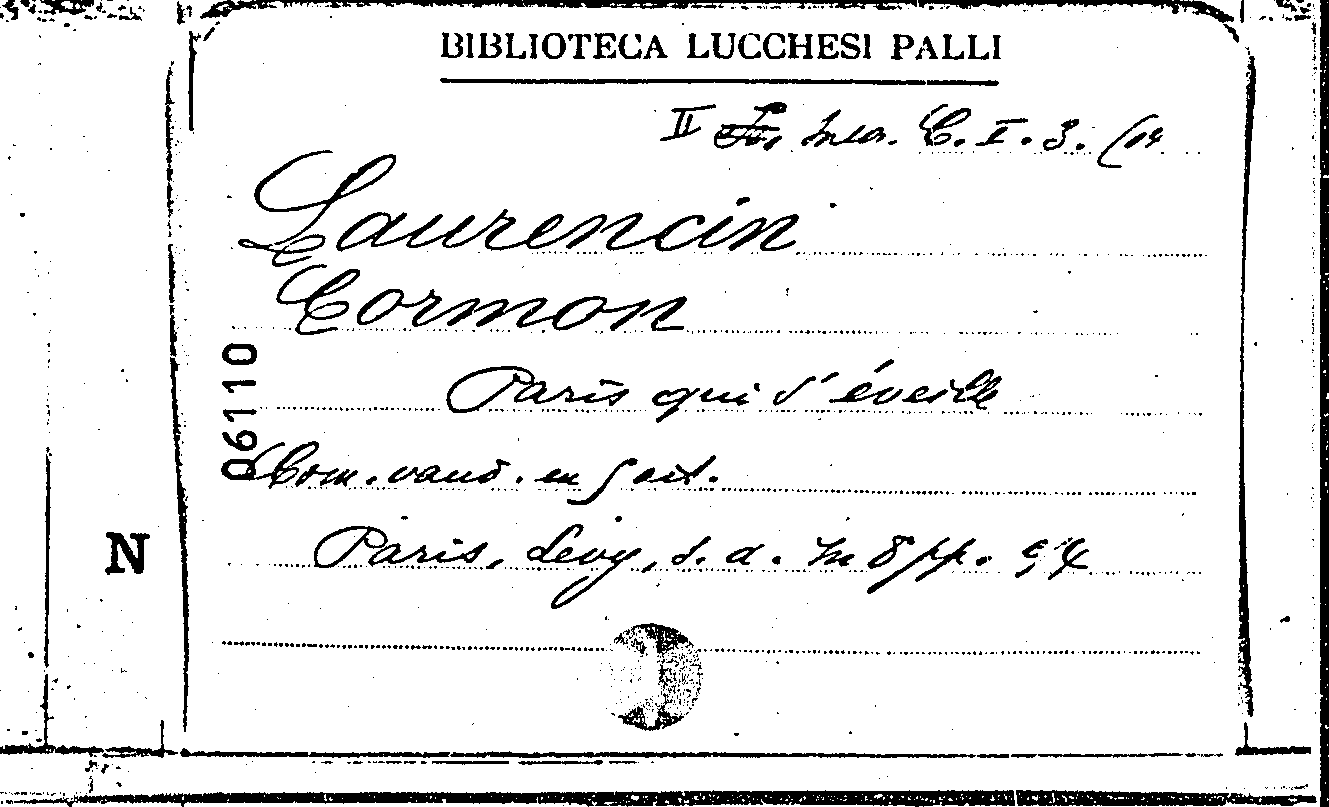 BIBLIOTECA LUCCHESI PALLI
II C. I. 3. (14
Laurencin
Cormon
Paris qui s'éveille
06110
Com. vaud. en 5 act.
N
Paris, Levy, s. a. In 8 pp. 94